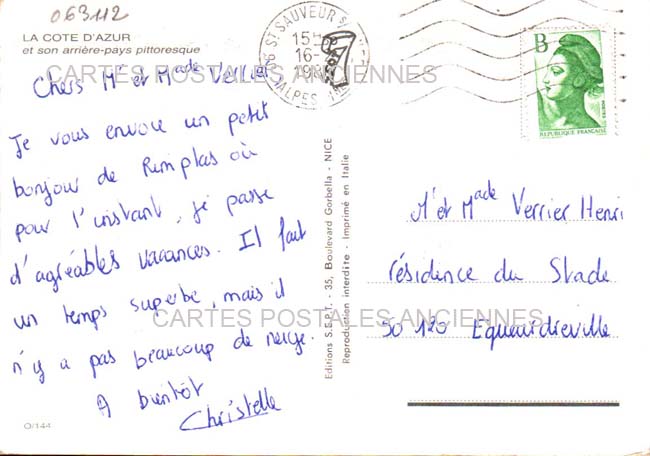 063112
LA COTE D'AZUR
et son arrière-pays pittoresque
Chers Mr et Made Verrier
Je vous envoie un petit
bonjour de Rimplas où
pour l'instant, je passe
d'agréables vacances. Il fait
un temps superbe, mais il
n'y a pas beaucoup de neige.
A bientôt
Christelle
O/144
Editions S.E.P.T. - 35, Boulevard Gorbella - NICE
Reproduction interdite - Imprimé en Italie
06 ST SAUVEUR S/
15H
16-
19
ALPES
B
REPUBLIQUE FRANÇAISE
Mr et Made Verrier Henri
résidence du Stade
50 120 Equeurdreville
CARTES POSTALES ANCIENNES
CARTES POSTALES ANCIENNES